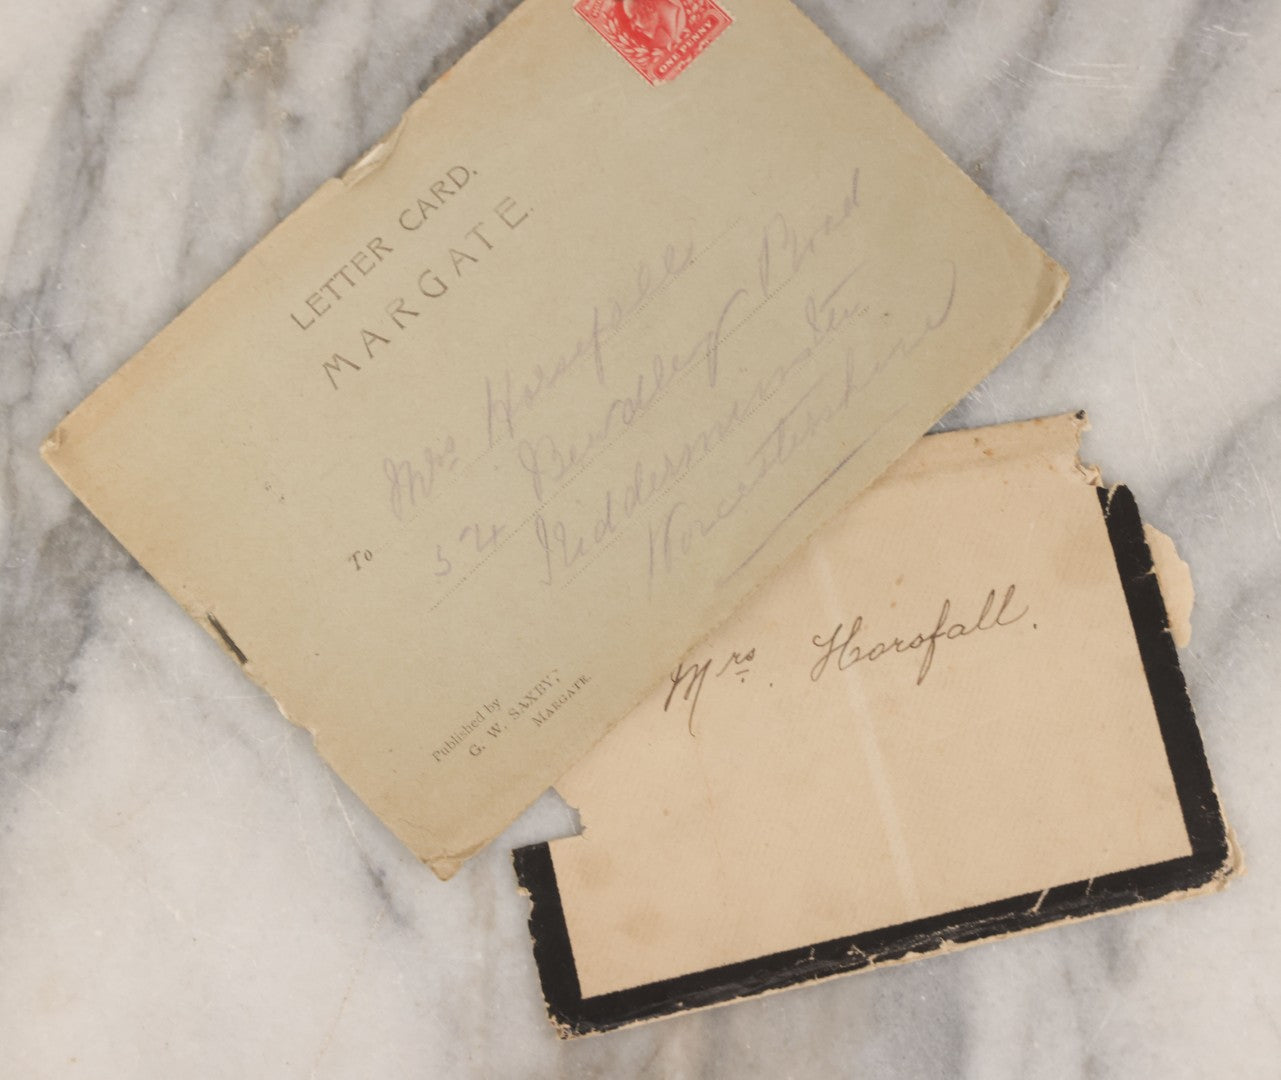 ONE PENNY
LETTER CARD.
MARGATE.
To
Mrs Horsfall
54 Bewdley Road
Kidderminster
Worcestershire
Published by
G. W. SAXBY,
MARGATE.
Mrs. Horsfall.